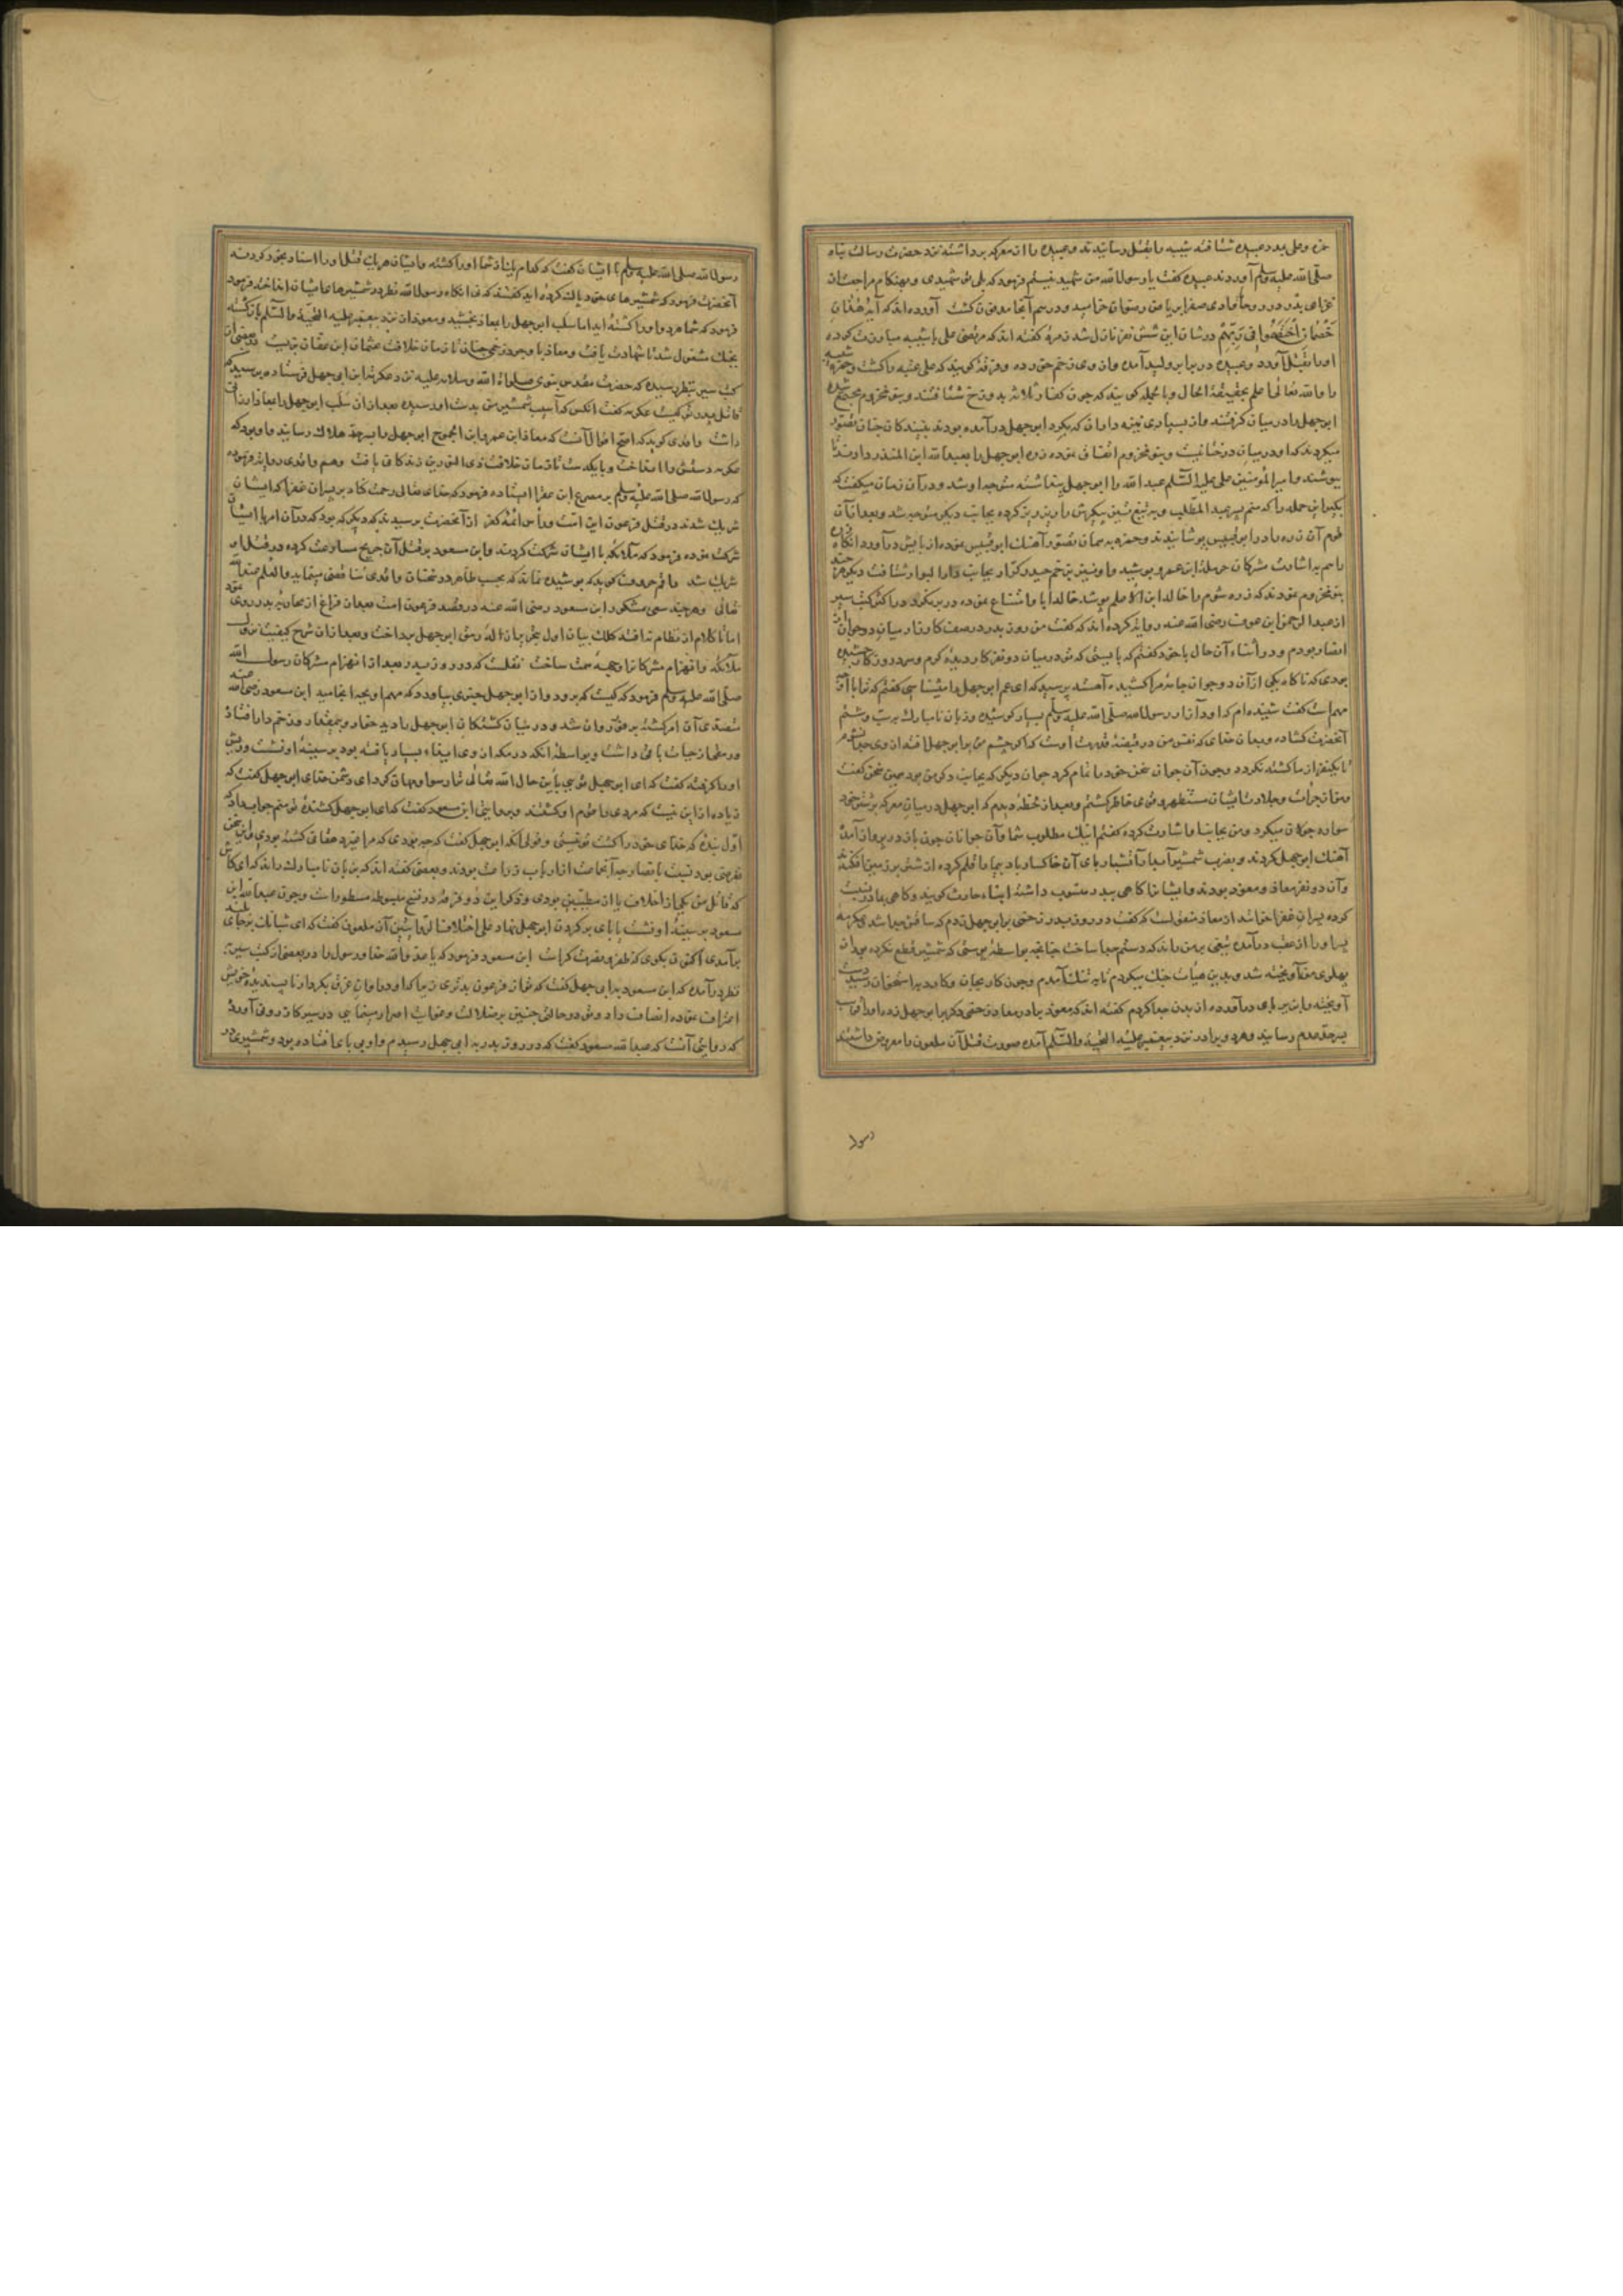 حمزه و علی بمدد عبیده شتافته شیبه را بقتل رسانیدند و عبیده را از معرکه برداشته نزد حضرت رسالت پناه
صلی الله علیه وسلم آوردند عبیده کفت یا رسول الله من شهید نیستم فرمود که بلی تو شهیدی و بهنکام مراجعت از
غزای بدر در روحا وادی صفرا بریاض رضوان خرامید و در سم آنجا مدفون کشت آورده اند که آیه هٰذٰانِ
خَصْمٰانِ اخْتَصَمُوا فی رَبِّهِمْ در شان این شش نفر نازل شد زمره کفته اند که مرتضی علی با شیبه مبارزت کرده
اورا بقتل آورد و عبیده در برابر ولید آمده و از وی زخم خورده و فرقه کویند که علی عتبه را کشت و حمزه شیبه
را والله تعالی اعلم بحقیقة الحال و بالجمله کویند که چون کفار ثلاثه بدوزخ شتافتند و بنو مخزوم مجتمع شده
ابوجهل را در میان کرفتند و از بسیاری نیزه داران که بکرد ابوجهل درآمده بودند بینندکان چنان تصور
میکردند که او در میان درختانیست و بنو مخزوم اتفاق نموده زره ابوجهل را بعبد الله ابن المنذر دادند تا
بپوشند و امیر المؤمنین علی علیه السلام عبد الله را ابوجهل پنداشته متوجه او شد و در آن زمان میکفت که
بکیر این حمله را که منم پسر عبد المطلب و به تیغ تیز پیکرش را ریز ریز کرده بجانب دیکر متوجه شد و بعد از آن
قوم آن زره را در ابو قیس پوشانیدند و حمزه بهمان تصور آهنک ابو قیس نموده از پایش درآورد انکاه
باسم به اشارت مشرکان حرمله ابن عمرو پوشید و او نیز بزخم حیدر کرار بجانب دار البوار شتافت دیکر هرچند
بنو مخزوم نمودند که زره شوم را خالد ابن الاعلم پوشد خالد ابا و امتناع نموده در بر نکرد در اکثر کتب سیر
از عبد الرحمن ابن عوف رضی الله عنه روایت کرده اند که کفت من روز بدر در صف کارزار میان دو جوان از
انصار بودم و در اثناء آن حال با خود کفتم که بایستی که تو در میان دو نفر کار دیده کرم و سرد روزکار چشیده
بودی که ناکاه یکی از آن دو جوان جامه مرا کشیده آهسته پرسید که ای عم ابوجهل را میشناسی کفتم که ترا با او چه
مهم است کفت شنیده ام که او در آزار رسول الله صلی الله علیه وسلم بسیار کوشیده و زبان نامبارک بسب و شتم
آنحضرت کشاده و بدان خدای که نفس من در قبضه قدرت اوست که اکر چشم من بر ابوجهل افتد از وی جدا نشوم
تا یکنفر از ما کشته نکردد و چون آن جوان سخن خود را تمام کرد جوان دیکر که بجانب دیکر من بود همین سخن کفت
و من از جرأت و جلادت ایشان مستظهر و قوی خاطر کشتم و بعد از لحظه دیدم که ابوجهل در میان معرکه بر شتر خود
سواره جولان میکرد و من بجانب او اشارت کرده کفتم اینک مطلوب شما و آن جوانان چون باز در پرواز آمده
آهنک ابوجهل کردند و بضرب شمشیر آبدار آتشبار پای آن خاکسار باد پیما را قلم کرده از شتر بر زمین افکندند
و آن دو نفر معاذ و معوذ بودند و ایشانرا کاهی بپدر منسوب داشته ابناء حارث کویند و کاهی بمادر نسبت
کرده پسران عفرا خوانند از معاذ منقولست که کفت در روز بدر زخمی بر ابوجهل زدم که ساقش جدا شد عکرمه
پسر او از عقب درآمده تیغی بر من راند که دستم جدا ساخت چنانچه بواسطه پوستی که شمشیر قطع نکرده بود از
پهلوی من آویخته شد و بدین هیأت جنک میکردم تا به تنک آمدم و چون کار بجان و کارد باستخوان رسید دست
آویخته را بزیر پای درآورده از بدن جدا کردم کفته اند که معوذ برادر معاذ زخمی دیکر بر ابوجهل زده او را قریب
بسرحد عدم رسانید و هر دو برادر نزد پیغمبر علیه التحیه والسلام آمده صورت قتل آن ملعون را معروض داشتند
رسول
رسول الله صلی الله علیه وسلم با ایشان کفت که کدام یک از شما او را کشته و ایشان هر یک قتل او را اسناد بخود کردند
آنحضرت فرمود که شمشیرهای خود پاک کرده اید کفتند که نی انکاه رسول الله نظر در شمشیرهای ایشان انداخته فرمود
فرمود که شما هر دو او را کشته اید اما سلب ابوجهل را بمعاذ بخشید و معوذ از نزد پیغمبر علیه التحیه والسلم بازکشته
بجنک مشغول شد تا شهادت یافت و معاذ با وجود زخمی چنان تا زمان خلافت عثمان ابن عفان بزیست در بعضی از
کتب سیر بنظر رسیده که حضرت مقدس نبوی صلوات الله وسلامه علیه نزد عکرمه ابن ابی جهل فرستاده پرسید که
قاتل پدرت کیست عکرمه کفت آنکس که آسیب شمشیر من بدست او رسیده بعد از آن سلب ابوجهل را بمعاذ ارزانی
داشت واقدی کوید که اصح اقوال آنست که معاذ ابن عمرو ابن الجموح ابوجهل را بسرحد هلاک رسانید و او بود که
عکرمه دستش را انداخت و با یکدست تا زمان خلافت ذی النورین زندکانی یافت و هم واقدی روایت فرموده
که رسول الله صلی الله علیه وسلم بر مصرع ابن عفرا ایستاده فرمود که خدای تعالی رحمت کناد بر پسران عفرا که ایشان
شریک شدند در قتل فرعون این امت و رأس ائمه کفر از آنحضرت پرسیدند که دیکر که بود که در آن امر با ایشان
شرکت نموده فرمود که ملائکه با ایشان شرکت کردند و ابن مسعود بر قتل آن جریح مسارعت کرده در قتل او
شریک شد راقم حروف کوید که پوشیده نماند که بحسب ظاهر در سخنان واقدی تناقضی مینماید والعلم عند الله
تعالی و هرچند سعی مشکور ابن مسعود رضی الله عنه در قصد فرعون امت بعد از فراغ از محاربه بدر روی نمود
اما تا کلام از نظام نیافته کلک بیان اول بتحریر ازاله رمق ابوجهل پرداخت و بعد از آن شرح کیفیت نزول
ملائکه و انهزام مشرکانرا وجهه همت ساخت نقلست که در روز بدر بعد از انهزام مشرکان رسول الله
صلی الله علیه وسلم فرمود که کیست که برود و از ابوجهل خبری بیاورد که مهم او بچه انجامید ابن مسعود رضی الله عنه
متصدی آن امر کشته بر فور روان شد و در میان کشتکان ابوجهل را دید خوار و بیمقدار در زخم دارا فتاد
و رمقی از حیات باقی داشت و بواسطه آنکه در مکه از وی ایذاء بسیار یافته بود بر سینه او نشست و ریش
او را کرفته کفت که ای ابوجهل تویی باین حال الله تعالی ترا رسوا و مهان کرد ای دشمن خدای ابوجهل کفت که
زیاده از این نیست که مردی را قوم او کشتند و بروایتی ابن مسعود کفت که ای ابوجهل کشنده تو منم جواب داد که
اول بنده که خدای خود را کشت تو نیستی و قولی آنکه ابوجهل کفت که چه بودی که مرا غیر دهقانی کشته بودی و این سخن
تعرض بود نسبت بانصار چه آنجماعت از ارباب زراعت بودند و بعضی کفته اند که بزبان نامبارک راند که ای کاش
که قاتل من یکی از احلاف یا از مطیبین بودی و ذکر این دو فرقه در نسخ مبسوطه مسطور است و چون عبد الله ابن
مسعود بر سینه او نشست یا پای بر کردن ابوجهل نهاد علی اختلاف الروایتین آن ملعون کفت که ای شبانک بر جای بلند
برآمدی اکنون بکوی که ظفر و نصرت کراست ابن مسعود فرمود که یا عدو الله خدا و رسول را و در بعضی از کتب سیر
بنظر درآمده که ابن مسعود به ابی جهل کفت که تو از فرعون بدتری زیرا که او در اوان غرق بکردار ناپسندیده خویش
اعتراف نموده انصاف داد و تو در حالتی چنین بر ضلالت و غوایت اصرار مینمایی در سیر کازرونی آورده
که روایتی آنست که عبد الله مسعود کفت که در روز بدر به ابی جهل رسیدم و او بی پای افتاده بود و شمشیری در